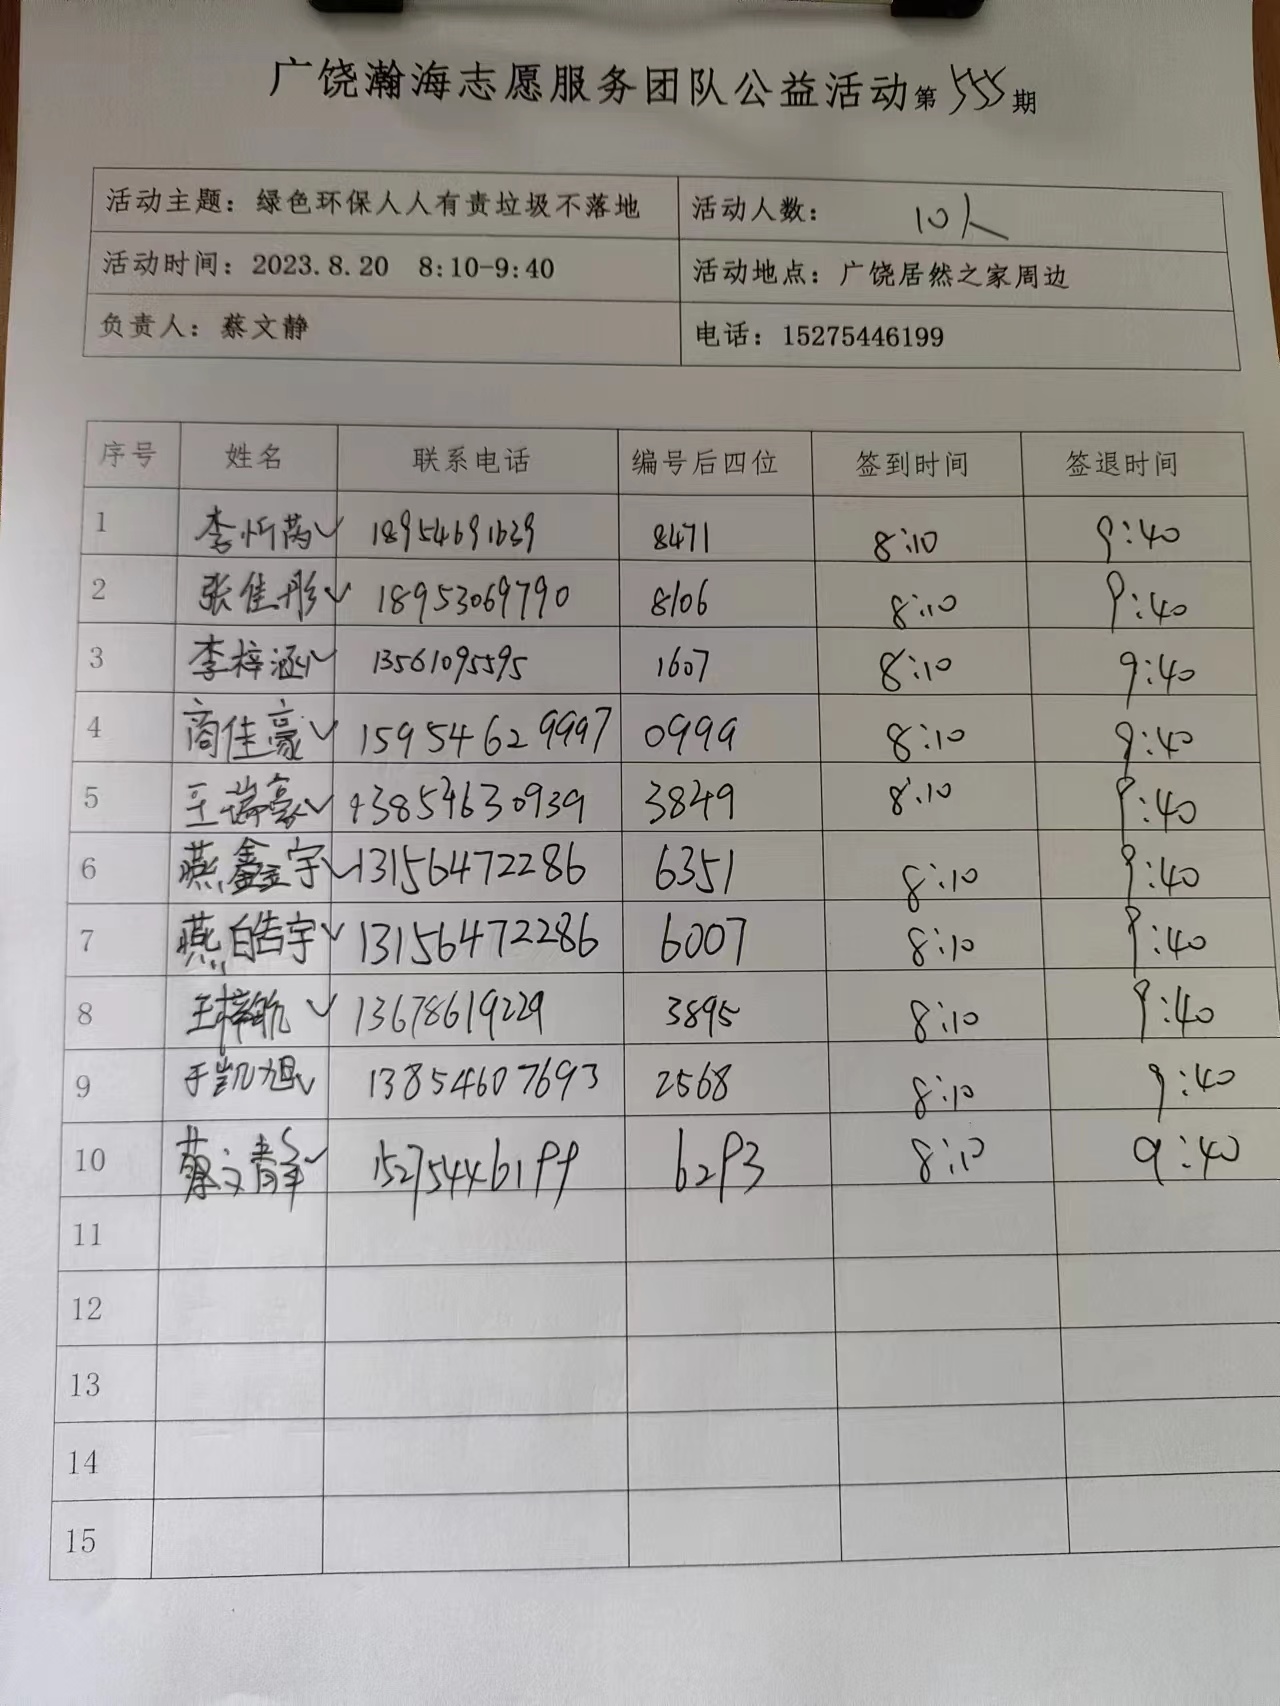 广饶瀚海志愿服务团队公益活动第555期
活动主题：绿色环保人人有责垃圾不落地 活动人数： 10人
活动时间：2023.8.20 8:10-9:40 活动地点：广饶居然之家周边
负责人：蔡文静 电话：15275446199
序号 姓名 联系电话 编号后四位 签到时间 签退时间
1 李炘芮✓ 18954691639 8471 8:10 9:40
2 张佳彤✓ 18953069790 8106 8:10 9:40
3 李梓涵✓ 13561095595 1607 8:10 9:40
4 商佳豪✓ 15954629997 0999 8:10 9:40
5 王瑞豪✓ 13854630939 3849 8:10 9:40
6 燕鑫宇✓ 13156472286 6351 8:10 9:40
7 燕皓宇✓ 13156472286 6007 8:10 9:40
8 王梓航✓ 13678619229 3895 8:10 9:40
9 于凯旭✓ 13854607693 2568 8:10 9:40
10 蔡文静✓ 15275446199 6293 8:10 9:40
11
12
13
14
15